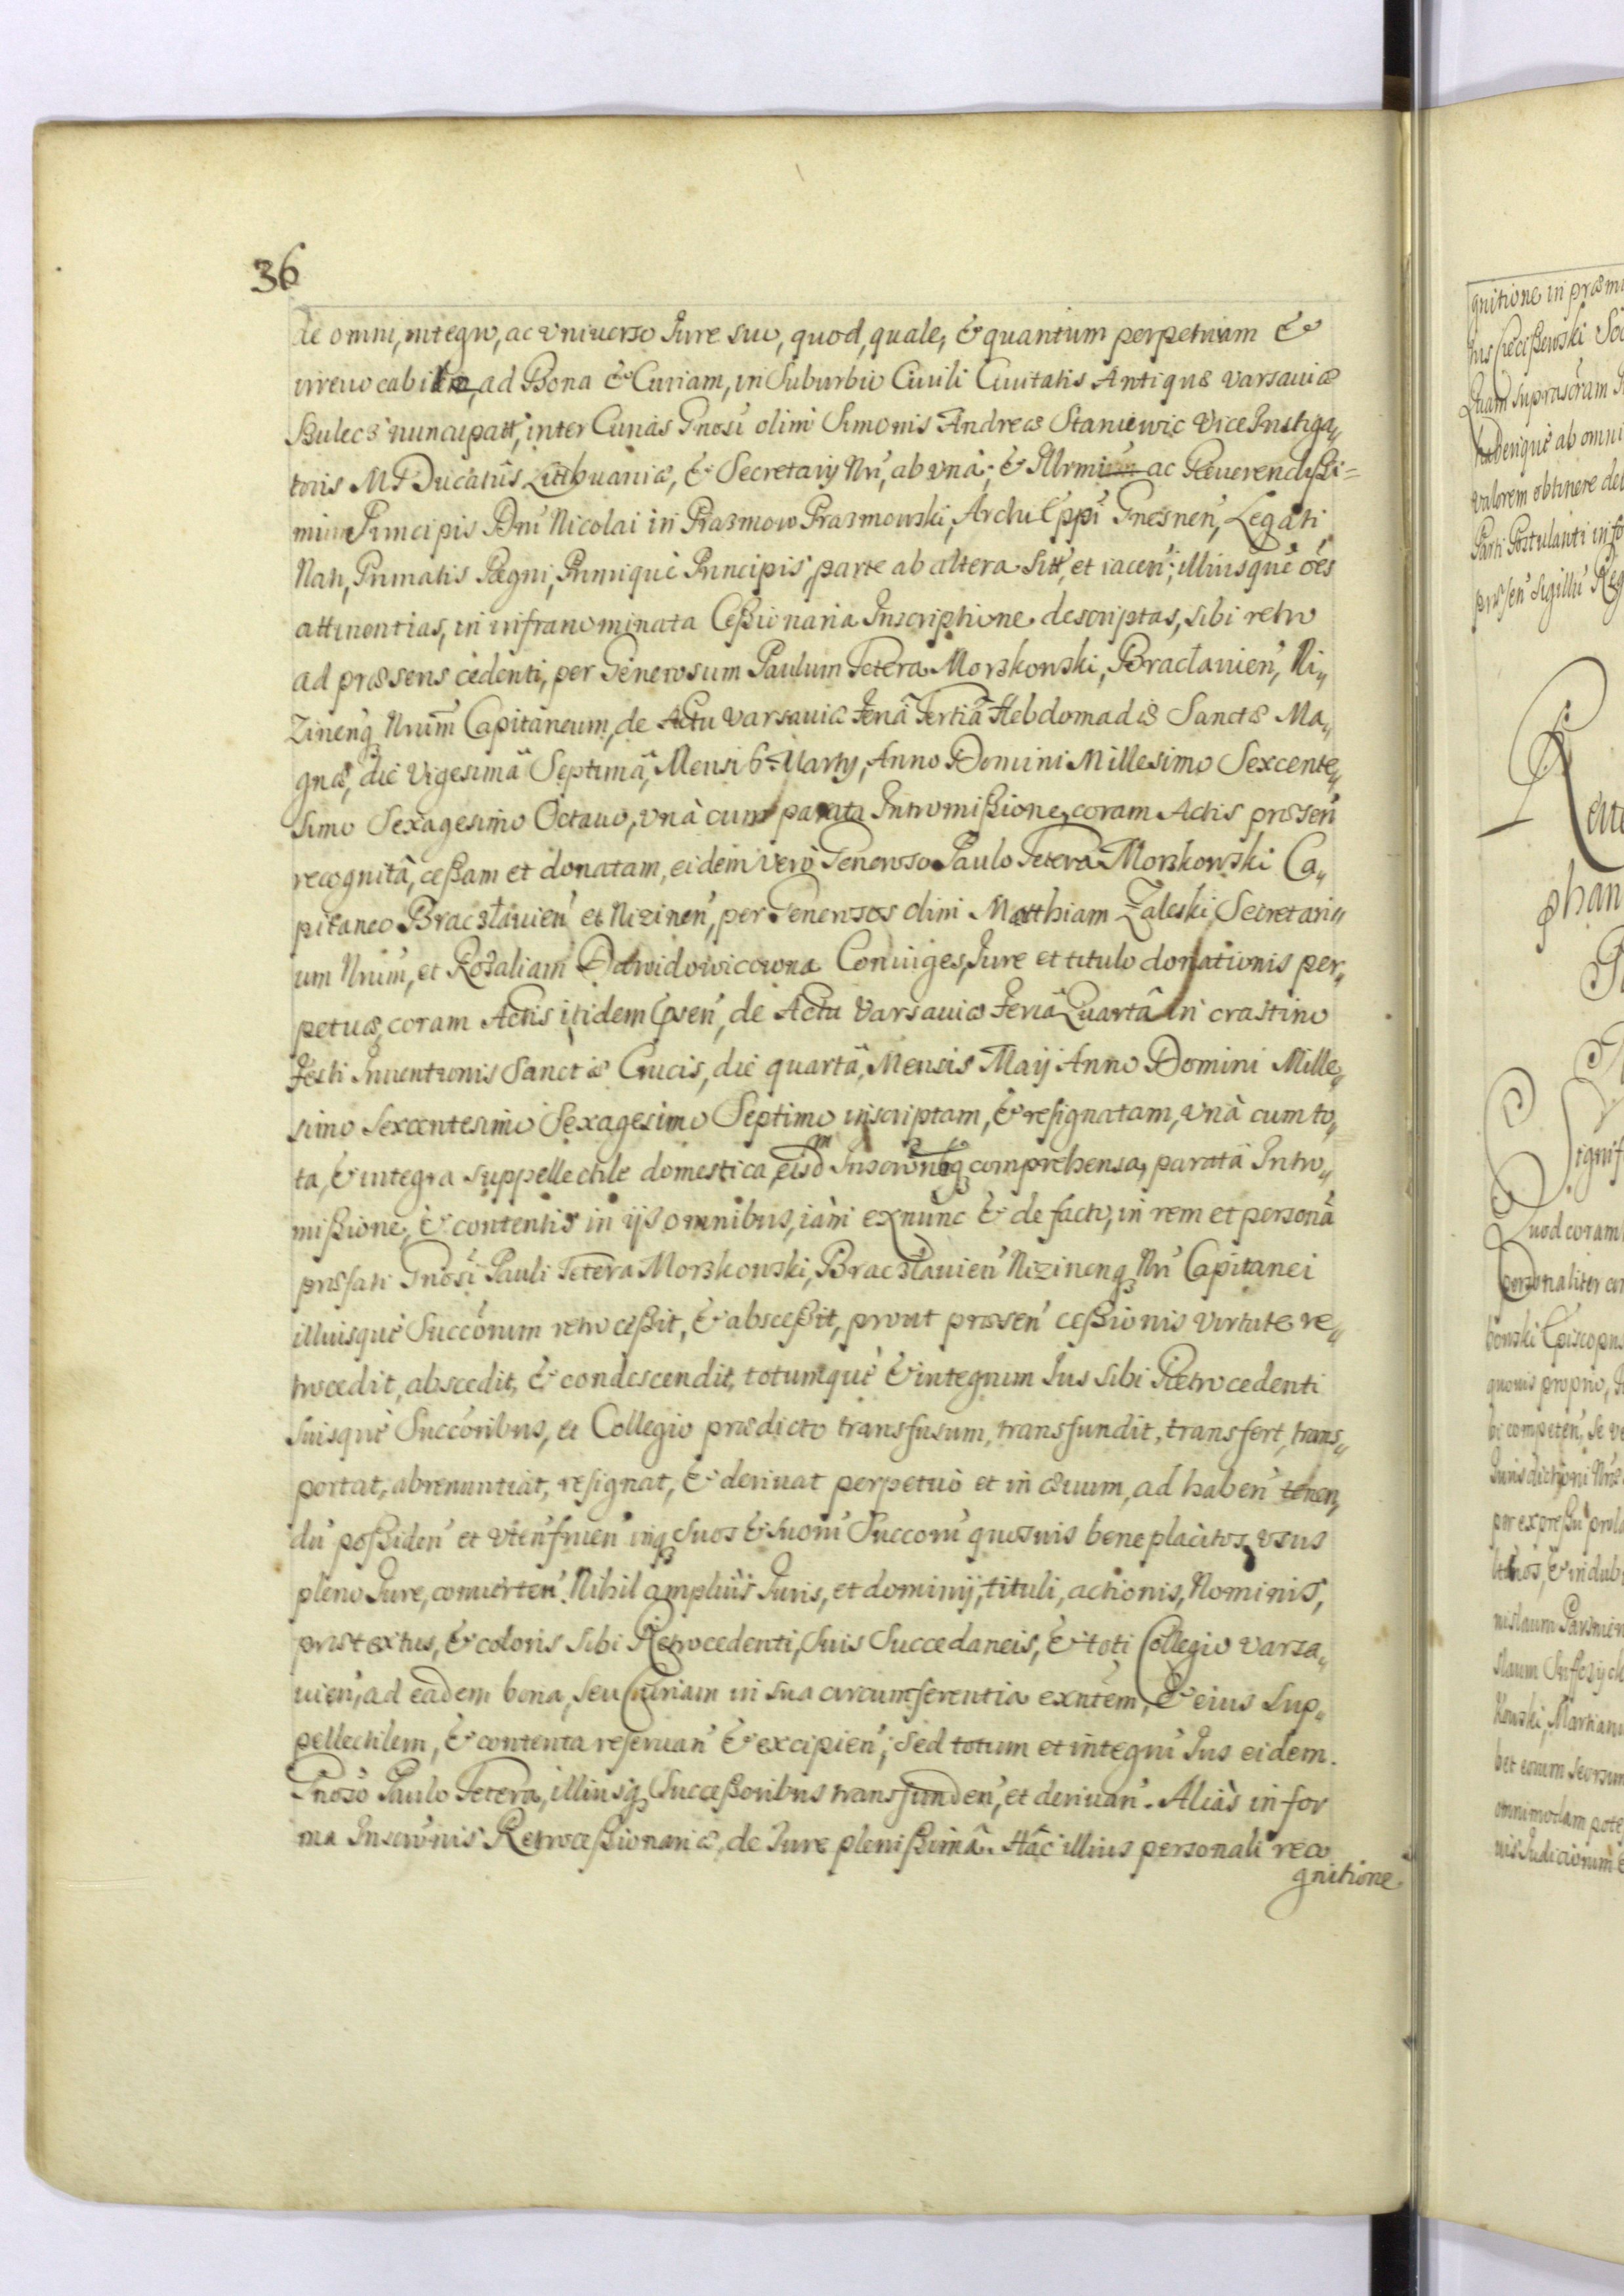 36
de omni, integro, ac vniuerso Iure suo, quod, quale, & quantum perpetuum &
irreuocabile, ad Bona & Curiam, in Suburbio Ciuili Ciuitatis Antiquæ Varsauiæ
Szulec nuncupatt, inter Curias Gnosi olim Simonis Andreæ Staniewic Vice Instiga„
toris M. D. Ducatûs Lithuaniæ, & Secretarij Nri, ab vnâ; & Illrmi ac Reuerendissi=
mi Principis Dni Nicolai in Prazmow Prazmowski, ArchiEppi Gnesnen, Legati
Nati, Primatis Regni, Primiquè Principis parte ab altera sitt, et iacen; illiusquè oēs
attinentias, in infranominata Cessionaria Inscriptione descriptas, sibi retro
ad præsens cedenti, per Generosum Paulum Tetera Morzkowski, Bracłauien, Ni„
zinenq Nrum Capitaneum, de Actu Varsauiæ Feriâ Tertiâ Hebdomadæ Sanctæ Ma„
gnæ, die Vigesimâ Septimâ, Mensis Martij, Anno Domini Millesimo Sexcente„
simo Sexagesimo Octauo, vnà cum parata Intromissione, coram Actis præsen
recognitâ, cessam et donatam, eidem verò Generoso Paulo Tetera Morzkowski Ca„
pitaneo Bracsłauien et Nizinen, per Generosos olim Matthiam Zaleski Secretari„
um Nrum, et Rozaliam Dawidowicowna Coniuges, Iure et titulo donationis per„
petuæ, coram Actis itidem psen, de Actu Varsauiæ Feriâ Quartâ in crastino
Festi Inuentionis Sanctæ Crucis, die quartâ, Mensis Maij Anno Domini Mille„
simo Sexcentesimo Sexagesimo Septimo inscriptam, & resignatam, vnà cum to„
ta, & integra suppellectile domestica, eisdm Inscrōnbq comprehensa, paratâ Intro„
missione, & contentis in ijs omnibus, iam exnunc & de facto, in rem et personā
præfati Gnosi Pauli Tetera Morzkowski, Bracsłauien Nizinenq Nri Capitanei
illiusquè Succorum retrocessit, & abscessit, prout præsen cessionis virtute re„
trocedit, abscedit, & condescendit, totumquè & integrum Ius sibi Retrocedenti
suisquè Succoribus, et Collegio prædicto transfusum, transfundit, transfert, trans„
portat, abrenuntiat, resignat, & deriuat perpetuò et in æuum, ad haben tenen„
du possiden et vtenfruen inq suos & suoru Succoru quosuis beneplacitos vsus
pleno Iure, conuerten. Nihil ampliùs Iuris, et dominij, tituli, actionis, Nominis,
prætextus, & coloris sibi Retrocedenti, suis Succedaneis, & toti Collegio Varsa„
uien, ad eadem bona, seu Curiam in sua circumferentia exntem, & eius sup„
pellectilem, & contenta reseruan & excipien; sed totum et integru Ius eidem
Gnoso Paulo Tetera, illiusq Successoribus transfunden, et deriuan. Aliàs in for
ma Inscrōnis Retrocessionariæ, de Iure plenissimâ. Hâc illius personali reco
gnitione